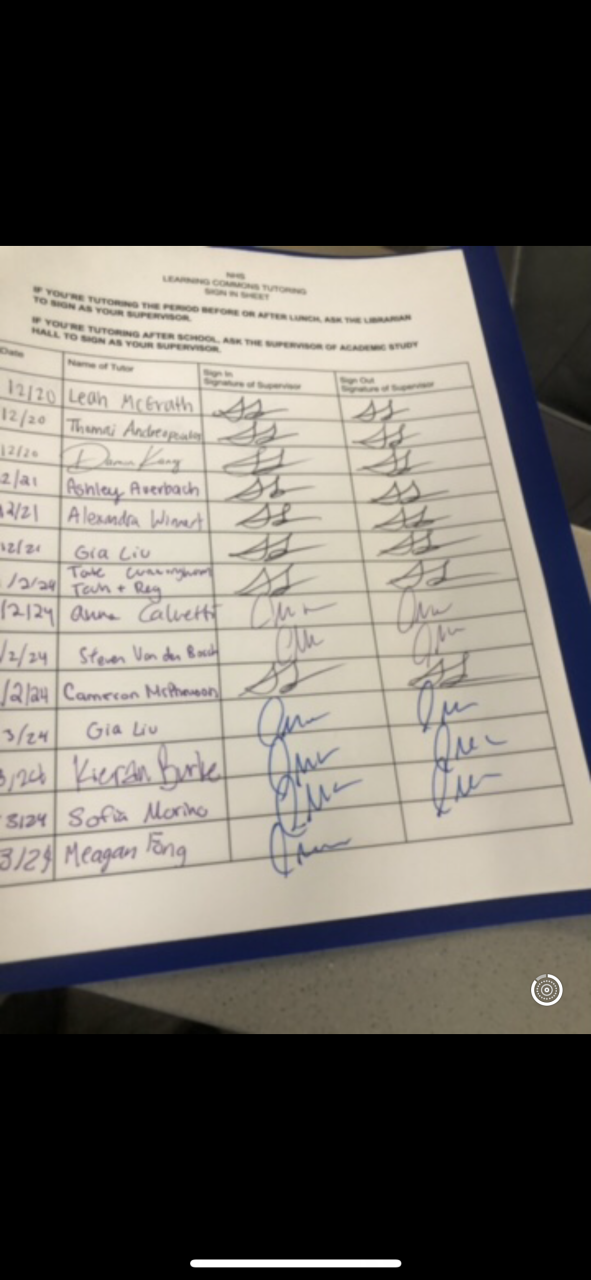 NHS
LEARNING COMMONS TUTORING
SIGN IN SHEET
IF YOU'RE TUTORING THE PERIOD BEFORE OR AFTER LUNCH, ASK THE LIBRARIAN
TO SIGN AS YOUR SUPERVISOR.
IF YOU'RE TUTORING AFTER SCHOOL, ASK THE SUPERVISOR OF ACADEMIC STUDY
HALL TO SIGN AS YOUR SUPERVISOR.
Date Name of Tutor Sign In Signature of Supervisor Sign Out Signature of Supervisor
12/20 Leah McGrath
12/20 Thomai Andreopoulos
12/20 Kang
2/21 Ashley Averbach
12/21 Alexandra
12/21 Gia Liu
/2/24 Tate Cunningham
Tech + Reg
/2/24 Anna Calvetti
/2/24 Steven Van den Bosch
/2/24 Cameron McPherson
3/24 Gia Liu
3/24 Kieran Burke
3/24 Sofia Marino
3/24 Meagan Fong